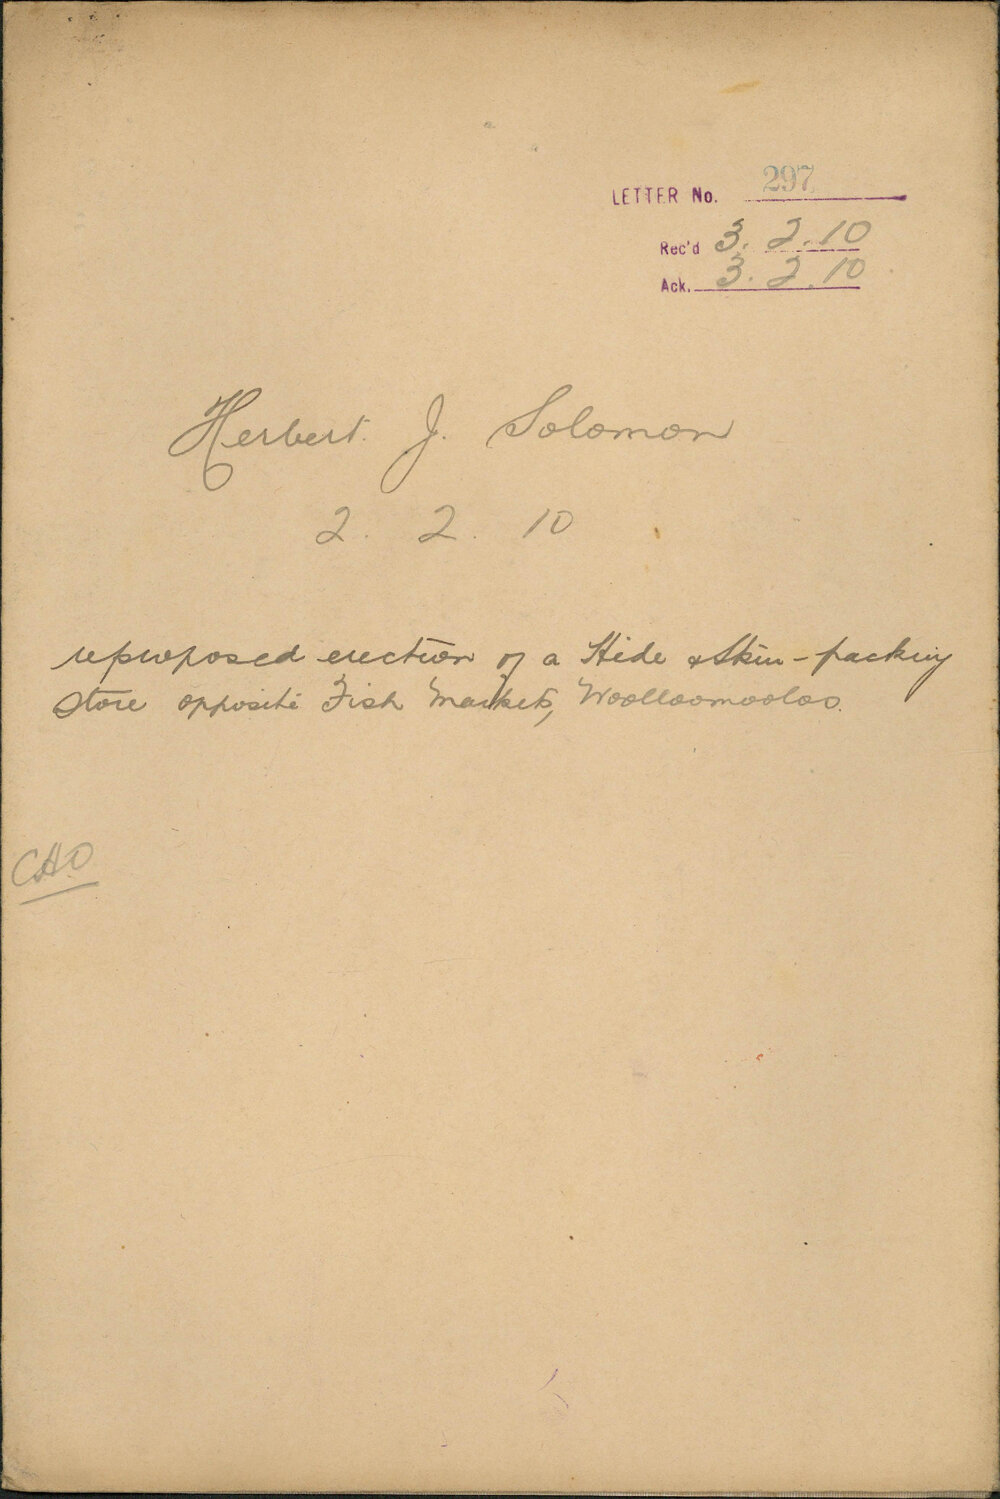 LETTER No. 297
Rec'd 3. 2. 10
Ack. 3. 2. 10
Herbert. J. Solomon
2. 2. 10
re proposed erection of a Hide & Skin-packing
store opposite Fish Markets, Woolloomooloo.
CHO